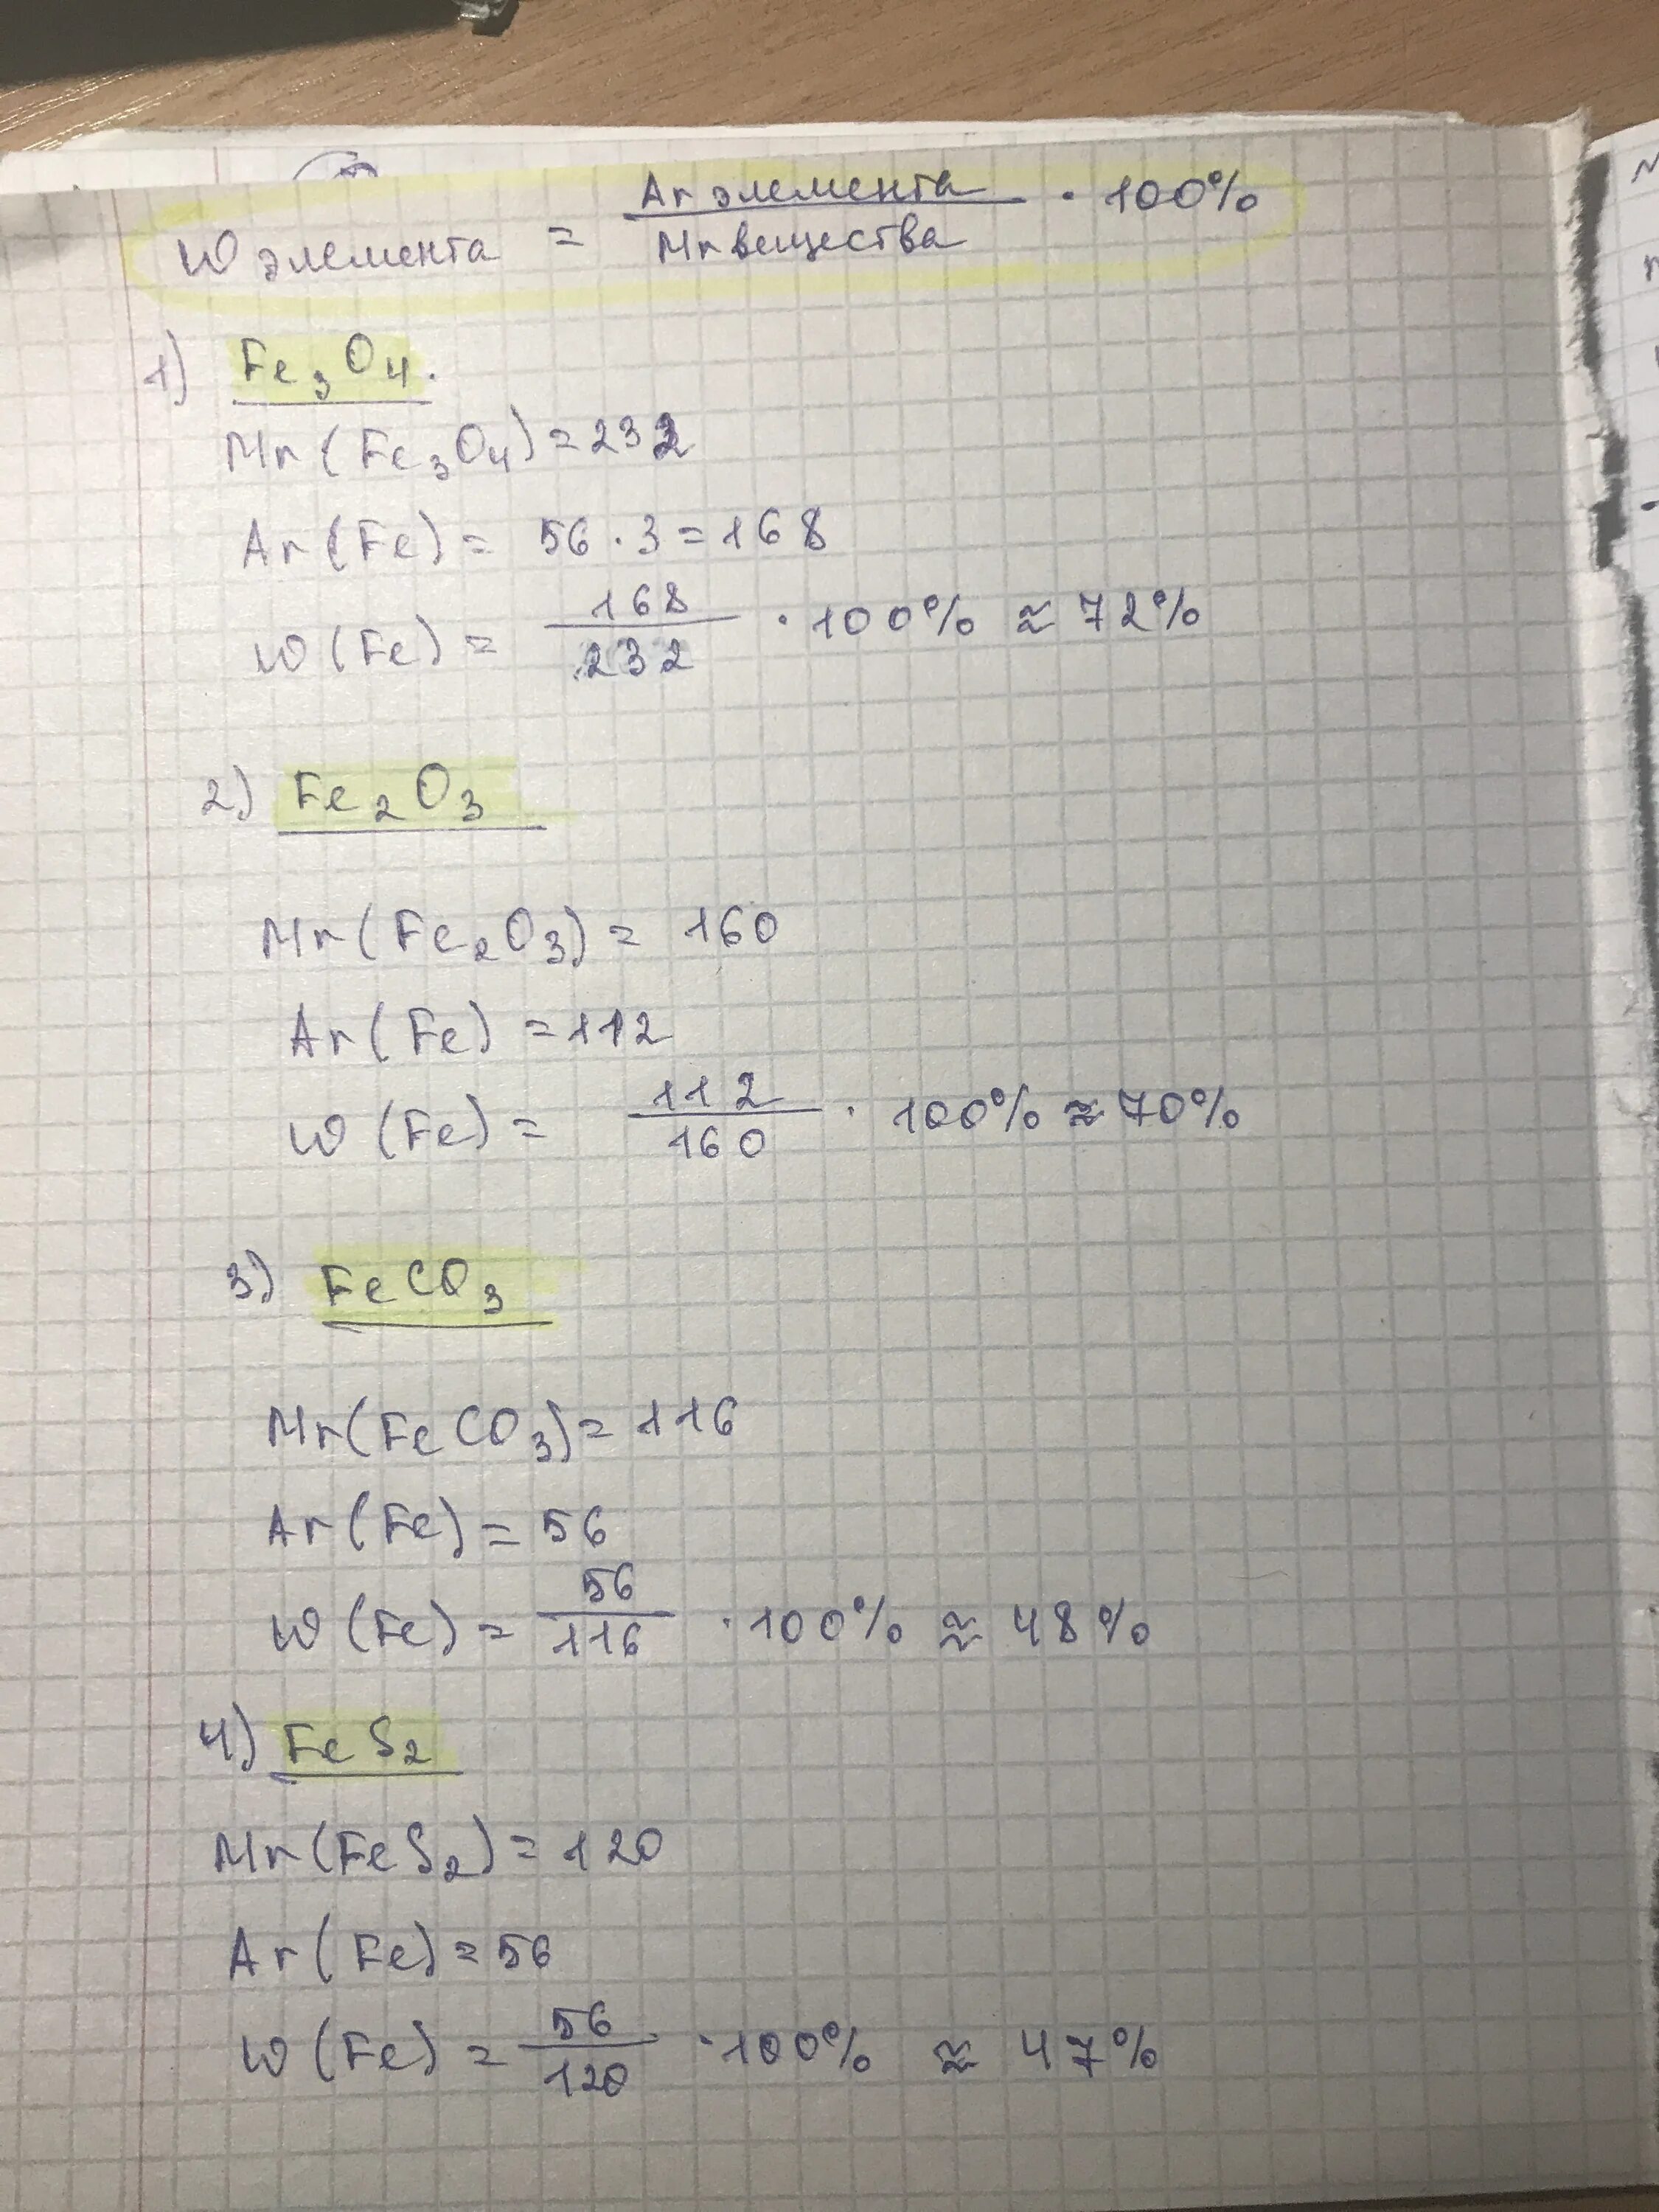 W элемента = Ar элемента / Mr вещества · 100%
1) Fe3O4.
Mr(Fe3O4) = 232
Ar(Fe) = 56 · 3 = 168
W(Fe) = 168/232 · 100% ≈ 72%
2) Fe2O3
Mr(Fe2O3) = 160
Ar(Fe) = 112
W(Fe) = 112/160 · 100% ≈ 70%
3) FeCO3
Mr(FeCO3) = 116
Ar(Fe) = 56
W(Fe) = 56/116 · 100% ≈ 48%
4) FeS2
Mr(FeS2) = 120
Ar(Fe) = 56
W(Fe) = 56/120 · 100% ≈ 47%